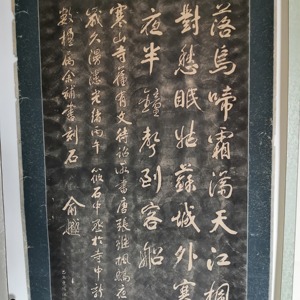 落烏啼霜滿天江楓
對愁眠姑蘇城外寒
夜半鐘聲到客船
寒山寺舊有文待詔所書唐張繼楓橋夜
歲久漫漶光緒丙午筱石中丞於寺中新
數楹屬余補書刻石 俞樾